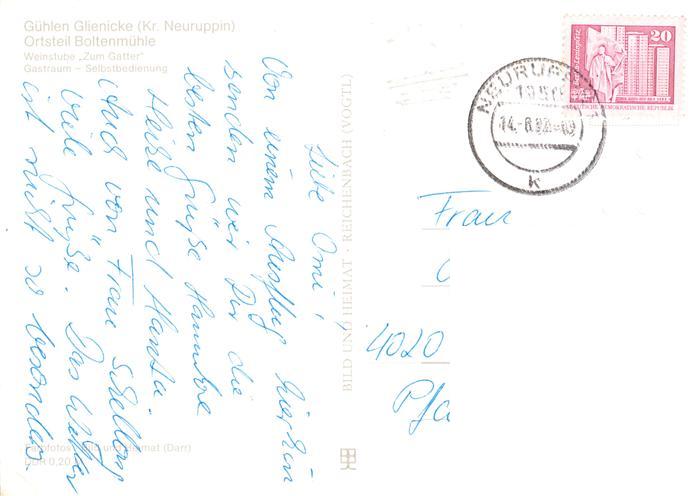 Gühlen Glienicke (Kr. Neuruppin)
Ortsteil Boltenmühle
Weinstube „Zum Gatter"
Gastraum – Selbstbedienung
Liebe Omi,
Von einem Ausflug hierhin
senden wir Dir die
besten Grüße
Heise und Hansa.
Auch von Frau Schelling
viele Grüße. Das Wetter
ist nicht so besonders.
BILD UND HEIMAT · REICHENBACH (VOGTL)
Farbfotos: Bild und Heimat (Darr)
DDR 0,20
NEURUPPIN 1
1950
14.-6.
k
20
DEUTSCHE DEMOKRATISCHE REPUBLIK
Frau
4020